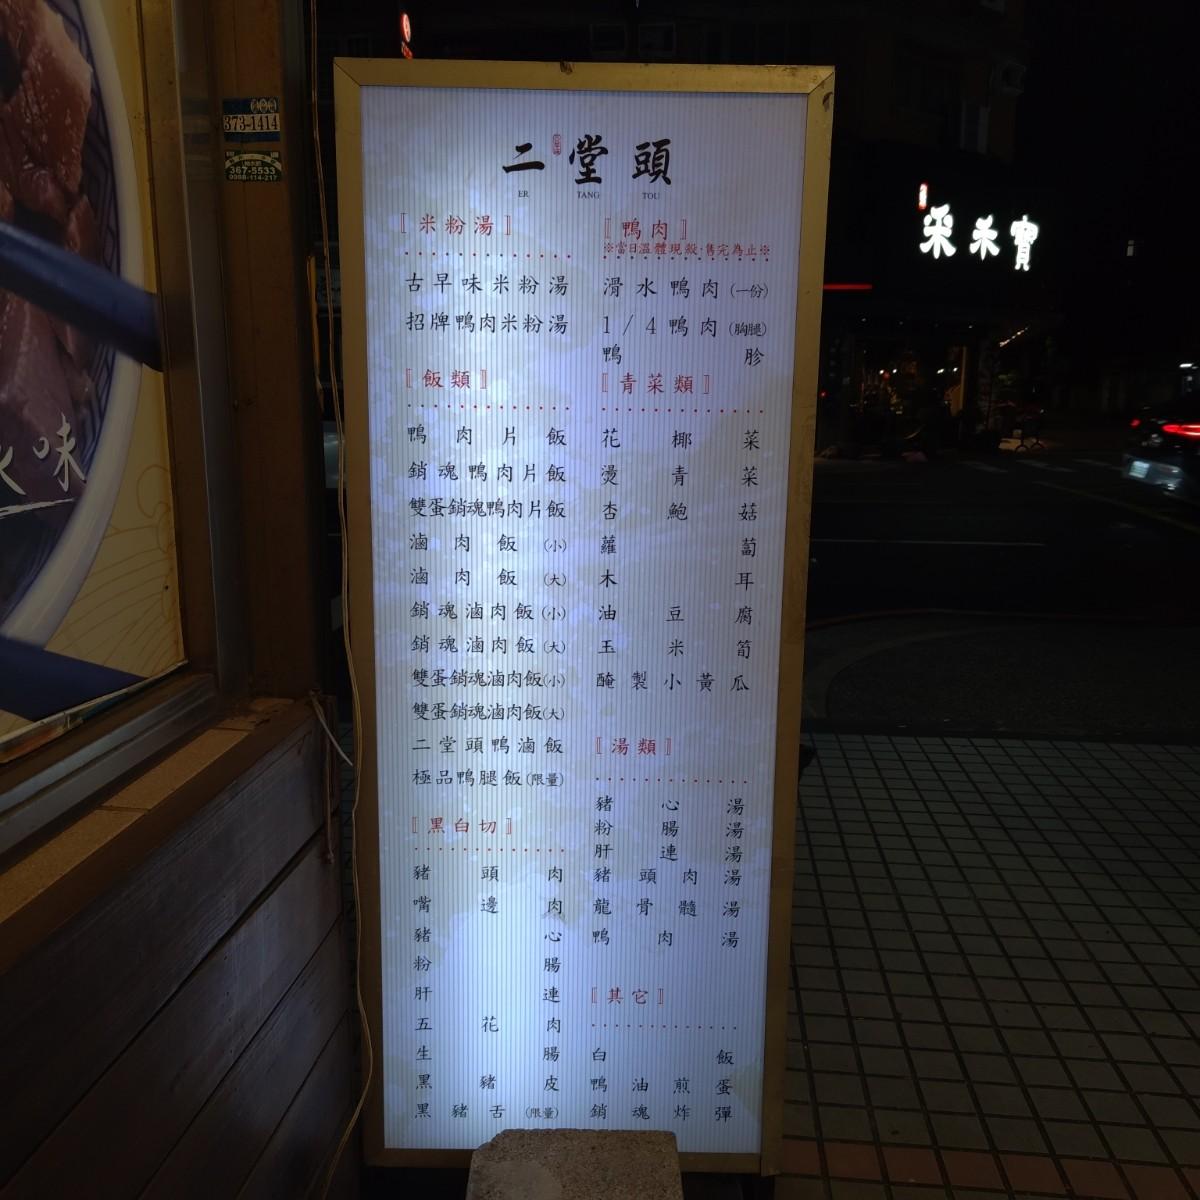 二堂頭
ER TANG TOU
〚米粉湯〛
古早味米粉湯
招牌鴨肉米粉湯
〚飯類〛
鴨肉片飯
銷魂鴨肉片飯
雙蛋銷魂鴨肉片飯
滷肉飯(小)
滷肉飯(大)
銷魂滷肉飯(小)
銷魂滷肉飯(大)
雙蛋銷魂滷肉飯(小)
雙蛋銷魂滷肉飯(大)
二堂頭鴨滷飯
極品鴨腿飯(限量)
〚黑白切〛
豬頭肉
嘴邊肉
豬心
粉腸
肝連
五花肉
生腸
黑豬皮
黑豬舌(限量)
〚鴨肉〛
※當日溫體現殺·售完為止※
滑水鴨肉(一份)
1/4鴨肉(胸腿)
鴨胗
〚青菜類〛
花椰菜
燙青菜
杏鮑菇
蘿蔔
木耳
油豆腐
玉米筍
醃製小黃瓜
〚湯類〛
豬心湯
粉腸湯
肝連湯
豬頭肉湯
龍骨髓湯
鴨肉湯
〚其它〛
白飯
鴨油煎蛋
銷魂炸彈
373-1414
367-5533
0988-114-217
味
采禾寶